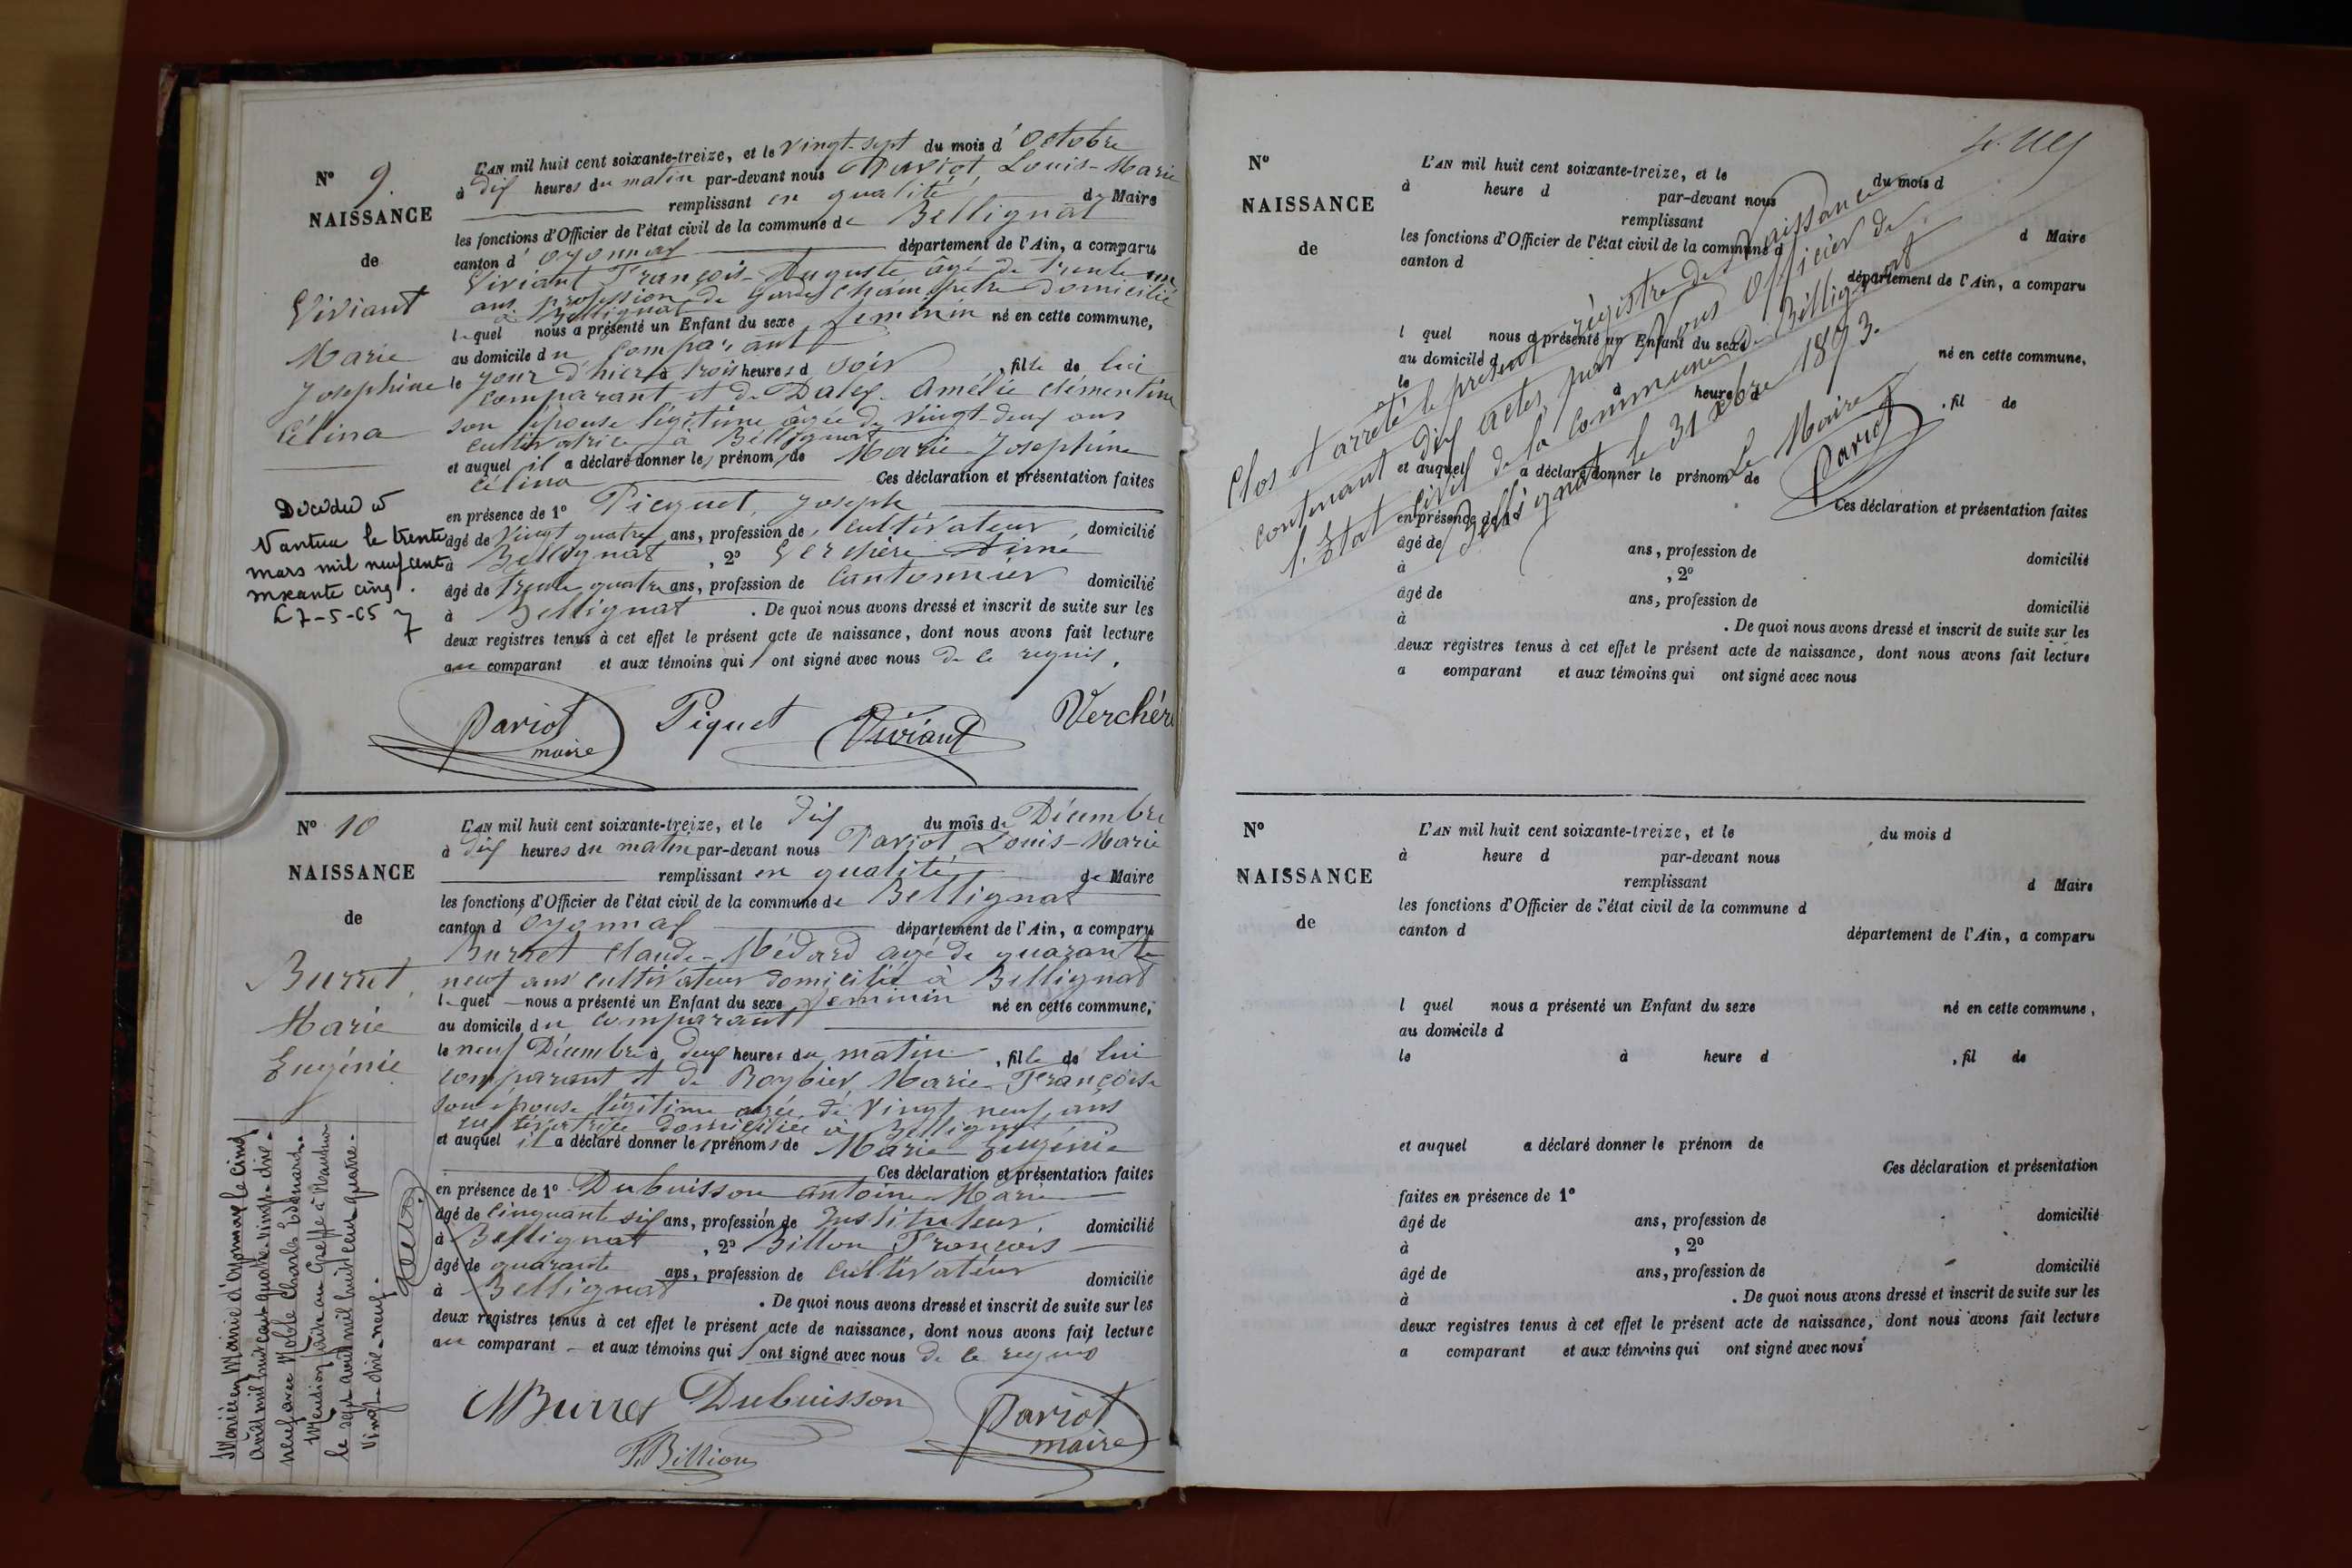 N° 9.
NAISSANCE
de
Viviant
Marie
Josephine
Célina
Décédée à
Nantua le trente
mars mil neuf cent
soixante cinq.
L'AN mil huit cent soixante-treize, et le vingt-sept du mois d'Octobre
à dix heures du matin par-devant nous Pariot, Louis-Marie
remplissant en qualité de Maire
les fonctions d'Officier de l'état civil de la commune de Bellignat
canton d'Oyonnax département de l'Ain, a comparu
Viviant François-Auguste âgé de trente un
ans profession de garde champêtre domicilié
à Bellignat
lequel nous a présenté un Enfant du sexe féminin né en cette commune,
au domicile du comparant
le jour d'hier à trois heures d soir, fille de lui
comparant et de Dalex Amélie clémentine
son épouse légitime âgée de vingt-deux ans
cultivatrice à Bellignat
et auquel il a déclaré donner les prénoms de Marie Josephine
Célina Ces déclaration et présentation faites
en présence de 1° Picquet, Joseph
âgé de vingt quatre ans, profession de cultivateur domicilié
à Bellignat, 2° Verchère Aimé
âgé de trente quatre ans, profession de Cantonnier domicilié
à Bellignat. De quoi nous avons dressé et inscrit de suite sur les
deux registres tenus à cet effet le présent acte de naissance, dont nous avons fait lecture
au comparant et aux témoins qui ont signé avec nous de ce requis.
Pariot
maire
Piquet
Viviant
Verchère
N° 10
NAISSANCE
de
Burret
Marie
Eugénie
Mariée en Mairie d'Oyonnax le cinq
avril mil huit cent quatre-vingt-dix-
neuf avec Noble Charles Edouard.
Mention faite au Greffe à Nantua
le sept avril mil huit cent quatre-
vingt-dix-neuf.
L'AN mil huit cent soixante-treize, et le dix du mois de Décembre
à dix heures du matin par-devant nous Pariot Louis-Marie
remplissant en qualité de Maire
les fonctions d'Officier de l'état civil de la commune de Bellignat
canton d'Oyonnax département de l'Ain, a comparu
Burret Claude-Médard âgé de quarante
neuf ans cultivateur domicilié à Bellignat
lequel nous a présenté un Enfant du sexe féminin né en cette commune,
au domicile du comparant
le neuf Décembre à deux heures du matin, fille de lui
comparant et de Roybier Marie-Françoise
son épouse légitime âgée de vingt neuf ans
cultivatrice domiciliée à Bellignat
et auquel il a déclaré donner les prénoms de Marie Eugénie
Ces déclaration et présentation faites
en présence de 1° Dubuisson antoine Marie
âgé de cinquante six ans, profession de Instituteur, domicilié
à Bellignat, 2° Billon François
âgé de quarante ans, profession de cultivateur domicilié
à Bellignat. De quoi nous avons dressé et inscrit de suite sur les
deux registres tenus à cet effet le présent acte de naissance, dont nous avons fait lecture
au comparant et aux témoins qui ont signé avec nous de ce requis
Burret
Dubuisson
Pariot
maire
F. Billion
N°
NAISSANCE
de
L'AN mil huit cent soixante-treize, et le du mois d
à heure d par-devant nous
remplissant d Maire
les fonctions d'Officier de l'état civil de la commune d
canton d département de l'Ain, a comparu
l quel nous a présenté un Enfant du sexe né en cette commune,
au domicile d
le à heure d, fil de
et auquel a déclaré donner le prénom de
Ces déclaration et présentation faites
en présence de 1°
âgé de ans, profession de domicilié
à , 2°
âgé de ans, profession de domicilié
à . De quoi nous avons dressé et inscrit de suite sur les
deux registres tenus à cet effet le présent acte de naissance, dont nous avons fait lecture
a comparant et aux témoins qui ont signé avec nous
Clos et arrêté le présent régistre des Naissances
contenant dix actes, par Nous Officier de
l'Etat Civil de la Commune de Bellignat
Bellignat, le 31 Xbre 1873.
Le Maire
Pariot
N°
NAISSANCE
de
L'AN mil huit cent soixante-treize, et le du mois d
à heure d par-devant nous
remplissant d Maire
les fonctions d'Officier de l'état civil de la commune d
canton d département de l'Ain, a comparu
l quel nous a présenté un Enfant du sexe né en cette commune,
au domicile d
le à heure d , fil de
et auquel a déclaré donner le prénom de
Ces déclaration et présentation
faites en présence de 1°
âgé de ans, profession de domicilié
à , 2°
âgé de ans, profession de domicilié
à . De quoi nous avons dressé et inscrit de suite sur les
deux registres tenus à cet effet le présent acte de naissance, dont nous avons fait lecture
a comparant et aux témoins qui ont signé avec nous